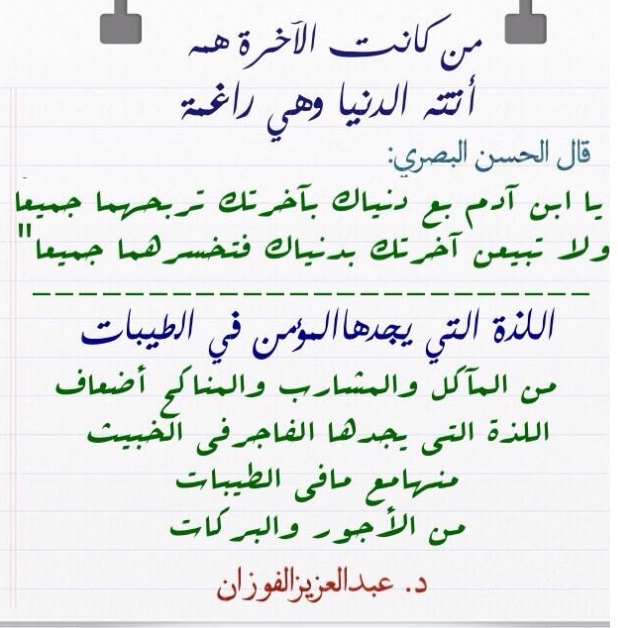 من كانت الآخرة همه
أتته الدنيا وهي راغمة
قال الحسن البصري:
يا ابن آدم بع دنياك بآخرتك تربحهما جميعا
ولا تبيعن آخرتك بدنياك فتخسرهما جميعا"
اللذة التي يجدهاالمؤمن في الطيبات
من المآكل والمشارب والمناكح أضعاف
اللذة التى يجدها الفاجرفى الخبيث
منهامع مافى الطيبات
من الأجور والبركات
د. عبدالعزيزالفوزان